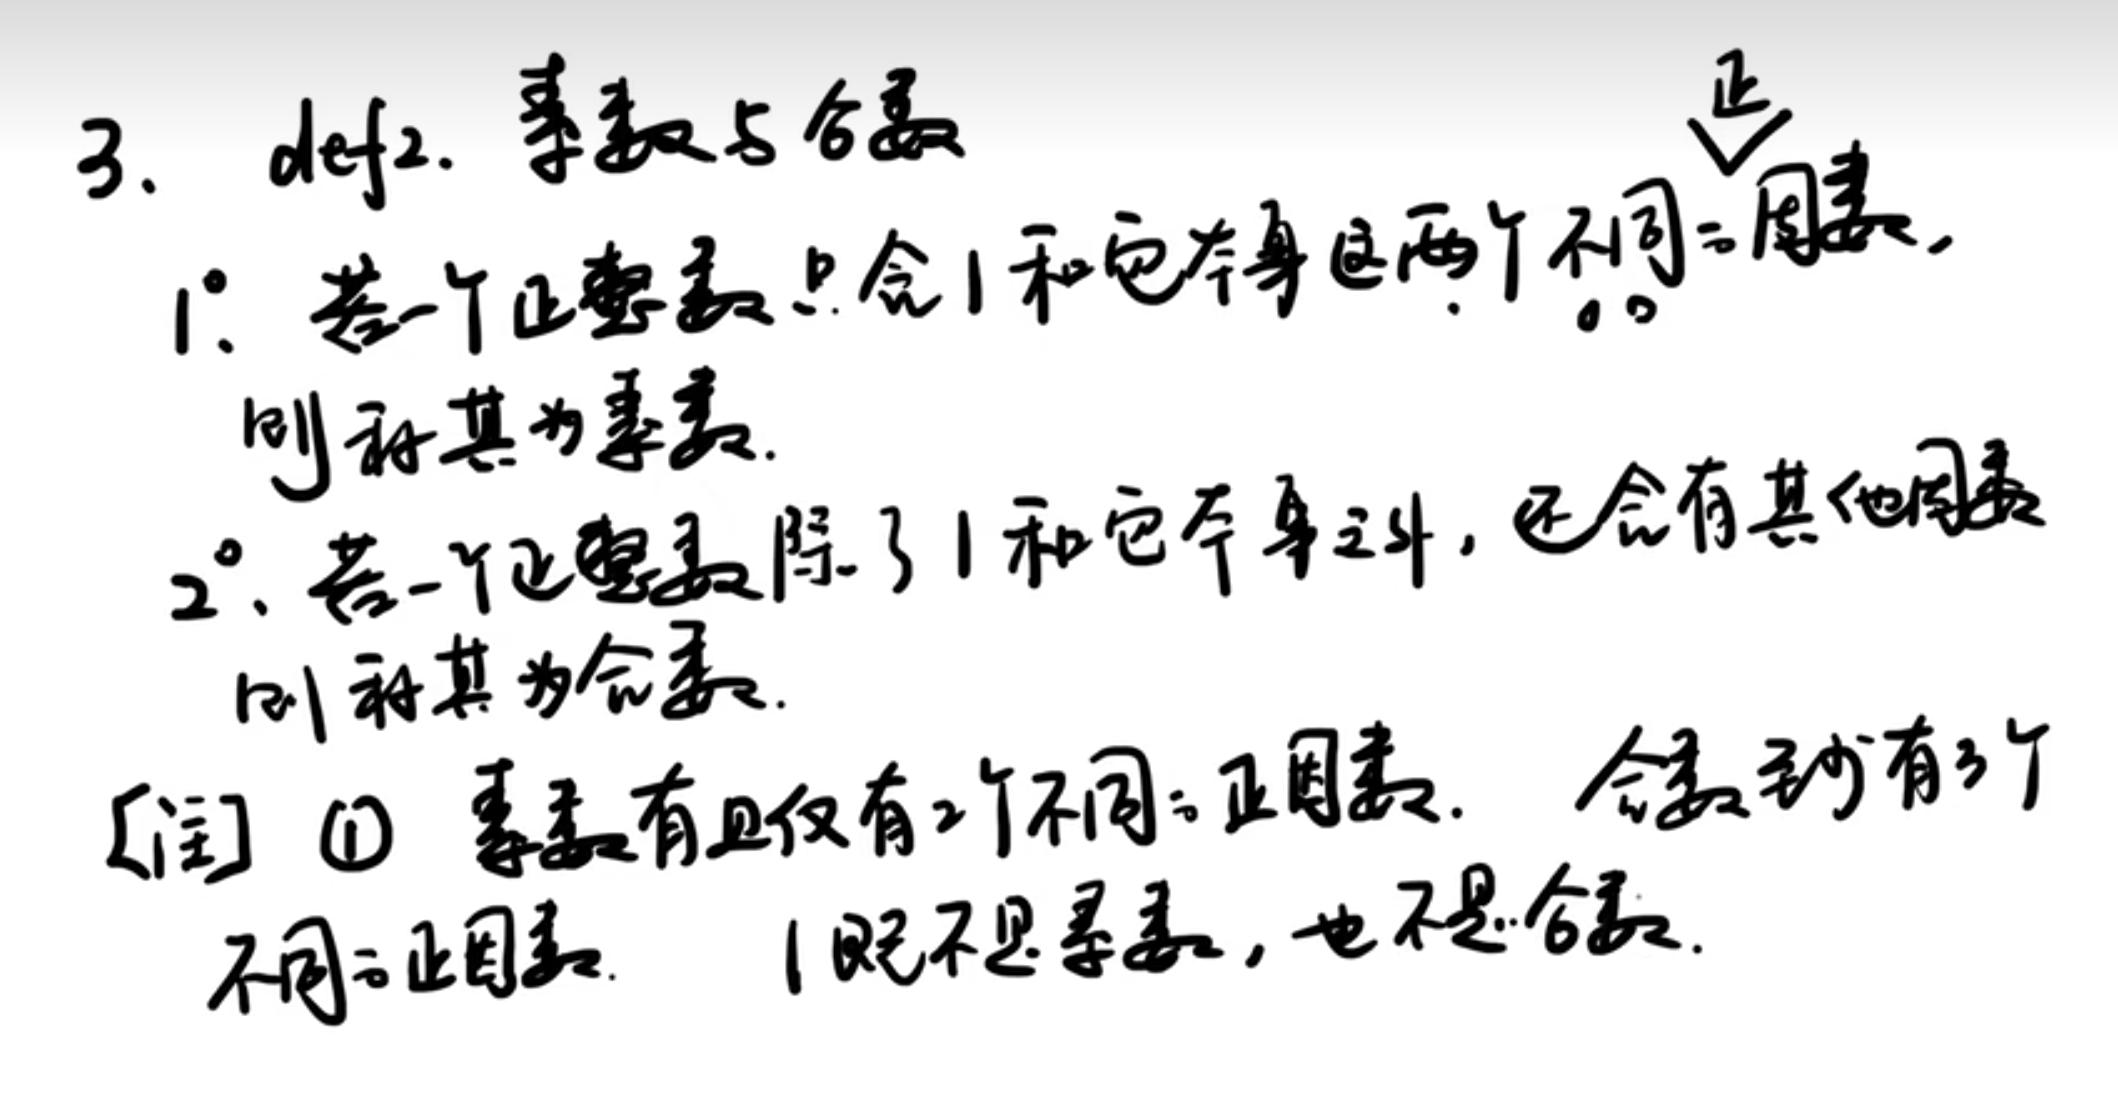 3. def2. 素数与合数
正
1°. 若一个正整数只含1和它本身这两个不同的因数,
则称其为素数.
2°. 若一个正整数除了1和它本身之外, 还含有其他因数
则称其为合数.
[注] ① 素数有且仅有2个不同的正因数. 合数至少有3个
不同的正因数. 1既不是素数, 也不是合数.